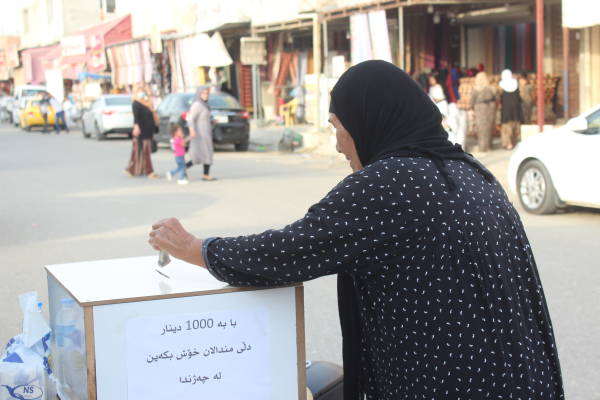 با بە 1000 دینار
دڵی منداڵان خۆش بکەین
لە جەژندا
NS